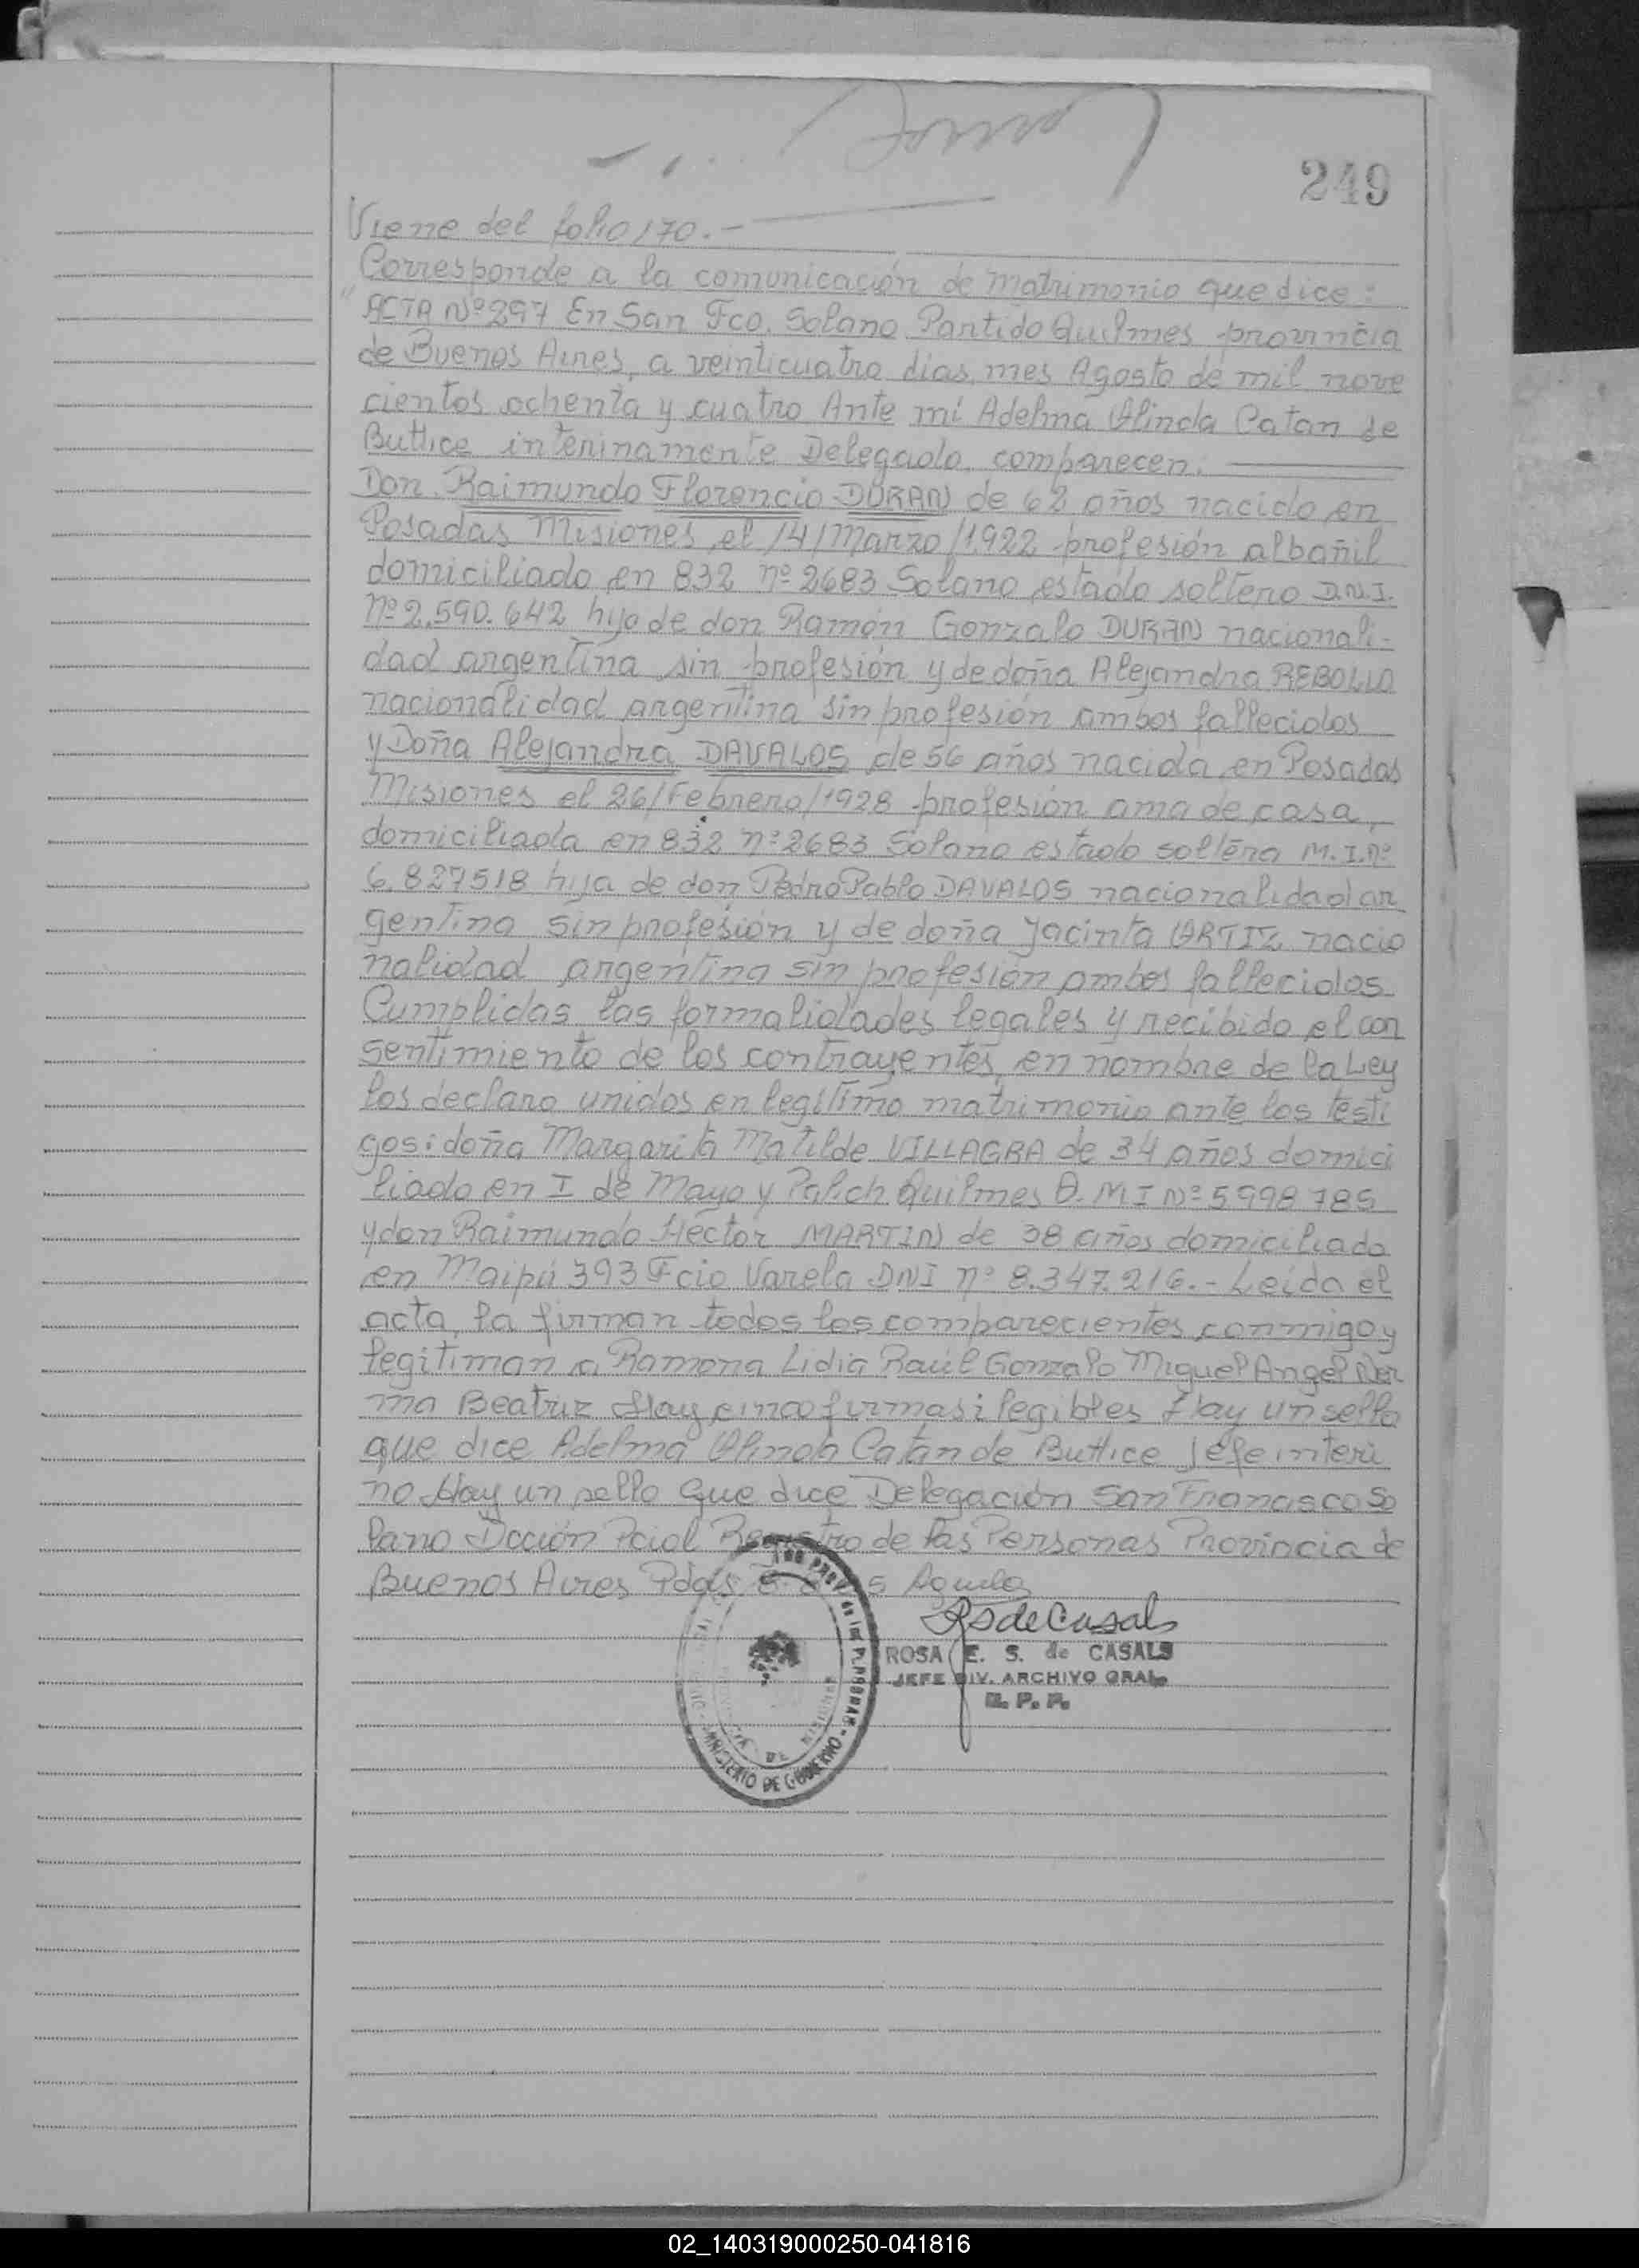 249
Viene del folio 170.-
Corresponde a la comunicación de matrimonio que dice:
"ACTA Nº 297 En San Fco. Solano Partido Quilmes provincia
de Buenos Aires, a veinticuatro dias, mes Agosto de mil nove
cientos ochenta y cuatro Ante mí Adelma Olinda Catan de
Buttice interinamente Delegado, comparecen.
Don Raimundo Florencio DURAN de 62 años nacido en
Posadas Misiones el 14/Marzo/1922 profesión albañil
domiciliado en 832 nº 2683 Solano estado soltero D.N.I.
Nº 2.590.642 hijo de don Ramón Gonzalo DURAN nacionali-
dad argentina sin profesión y de doña Alejandra REBOLLO
nacionalidad argentina sin profesión ambos fallecidos
y Doña Alejandra DAVALOS de 56 años nacida en Posadas
Misiones el 26/Febrero/1928 profesión ama de casa,
domiciliada en 832 nº 2683 Solano estado soltera M.I.nº
6.827518 hija de don Pedro Pablo DAVALOS nacionalidad ar
gentina sin profesión y de doña Jacinta ORTIZ nacio
nalidad argentina sin profesión ambos fallecidos
Cumplidas las formalidades legales y recibido el con
sentimiento de los contrayentes, en nombre de la Ley
los declaro unidos en legítimo matrimonio ante los testi
gos: doña Margarita Matilde VILLAGRA de 34 años domici
liado en I de Mayo y Quilmes O. MI Nº 5998785
y don Raimundo Hector MARTIN de 38 años domiciliado
en Maipú 393 Fcio Varela DNI nº 8.347.216.- Leída el
acta, la firman todos los comparecientes conmigo y
legitiman a Ramona Lidia Raúl Gonzalo Miguel Angel Nor
ma Beatriz Hay cinco firmas ilegibles Hay un sello
que dice Adelma Olinda Catan de Buttice Jefe interi
no Hay un sello que dice Delegación San Francisco So
lano Dcción Pcial Registro de las Personas Provincia de
Buenos Aires Pdas
RSdeCasals
ROSA E. S. de CASALS
JEFE DIV. ARCHIVO GRAL.
R. P. P.
MINISTERIO DE GOBIERNO
02_140319000250-041816